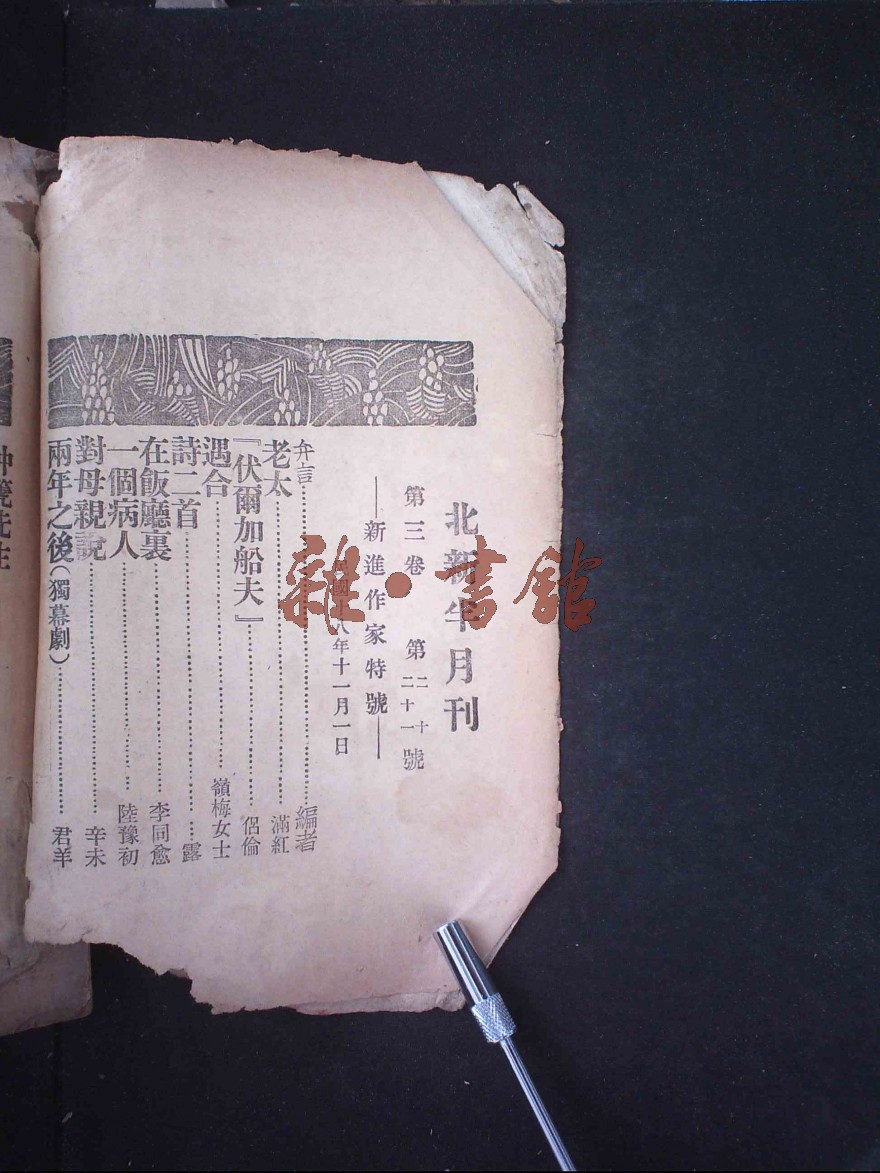 北新半月刊
第三卷 第二十 二十一號
——新進作家特號——
民國十八年十一月一日
弁言……編者
老太……滿紅
『伏爾加船夫』……侶倫
遇合……嶺梅女士
詩二首……露
在飯廳裏……李同愈
一個病人……陸豫初
對母親說……辛未
兩年之後(獨幕劇)……君羊
雜·書館